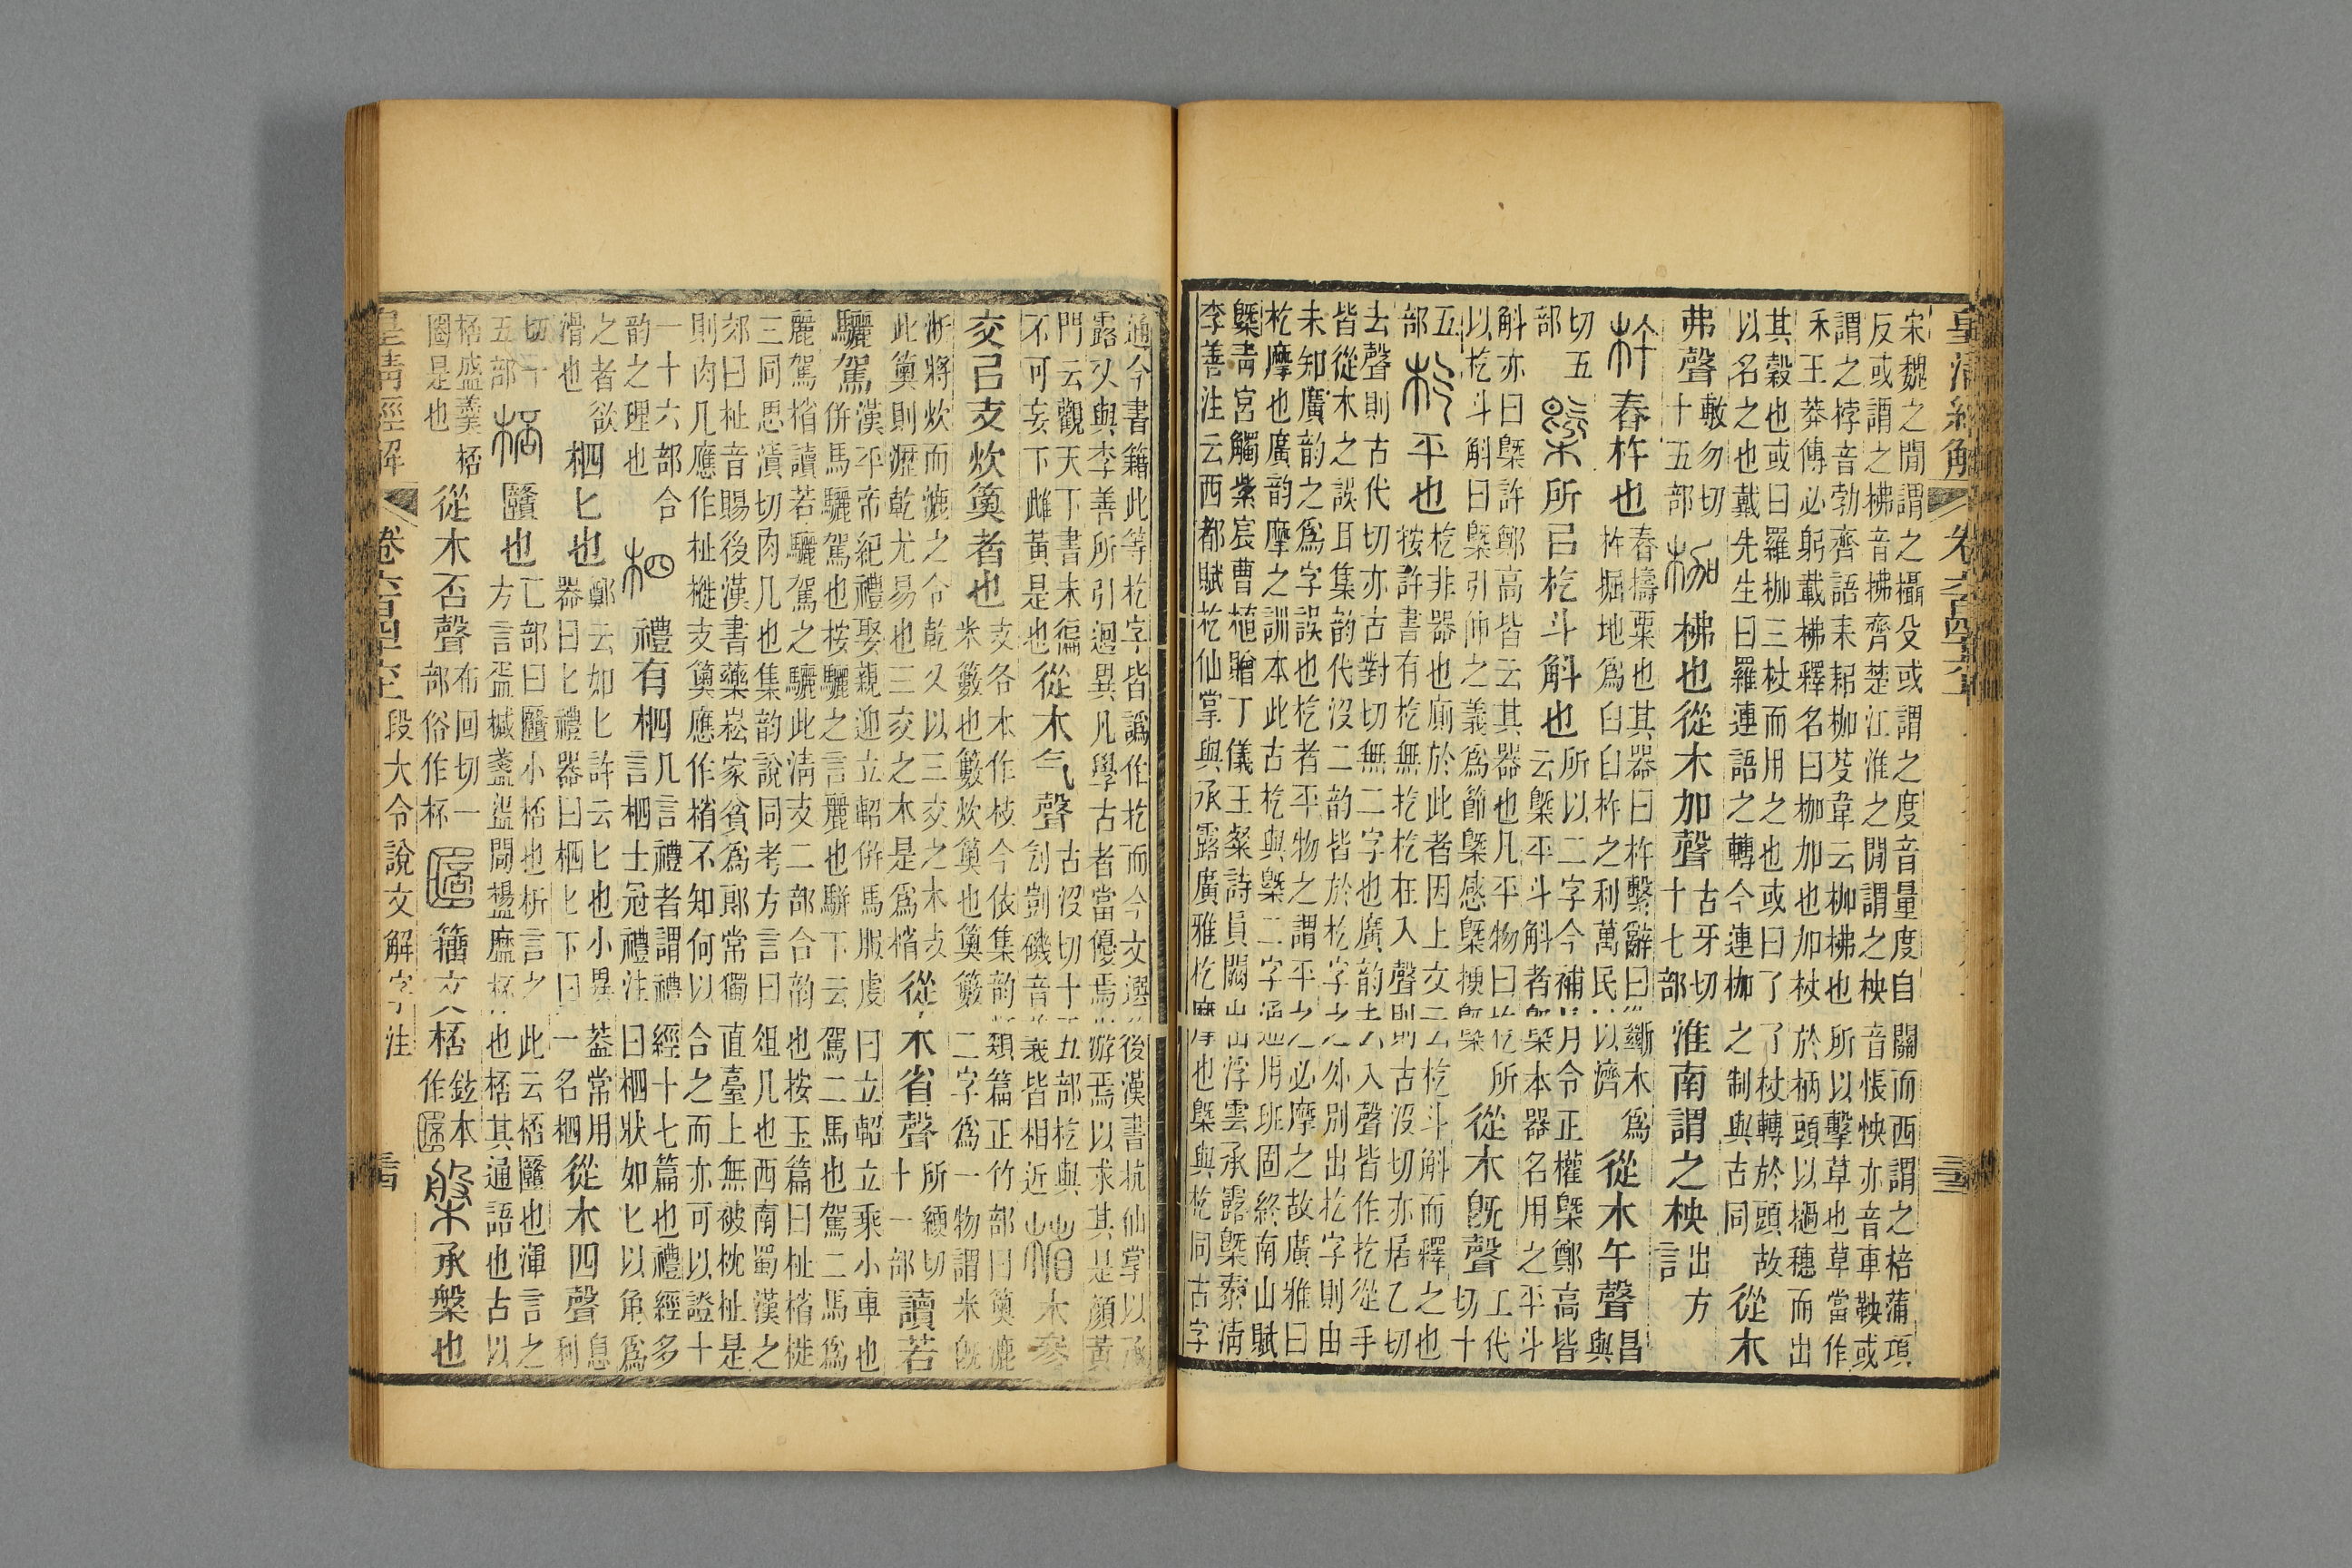 皇清經解 卷六百四十六 三三
宋魏之閒謂之攝殳或謂之度音量度自關而西謂之棓蒲項
反或謂之柫音拂齊楚江淮之閒謂之柍音悵怏亦音車鞅或
謂之桲音勃齊語耒耞枷芟韋云枷柫也所以擊草也草當作
禾王莽傳必躬載柫釋名曰枷加也加杖於柄頭以檛穗而出
其穀也或曰羅枷三杖而用之也或曰了了杖轉於頭故
以名之也戴先生曰羅連語之轉今連枷之制與古同 從木
弗聲 敷勿切十五部 枷 柫也從木加聲 古牙切十七部 淮南謂之柍 出方言
杵 舂杵也 舂擣粟也其器曰杵繫辭曰斷木爲杵掘地爲臼臼杵之利萬民以濟 從木午聲 昌與
切五部 㮣 所㠯杚斗斛也 所以二字今補月令正權槩鄭高皆云槩平斗斛者槩本器名用之平斗
斛亦曰槩許鄭高皆云其器也凡平物曰杚所以杚斗斛曰槩引伸之義爲節槩感槩挭槩 從木旣聲 工代切十
五部 杚 平也 杚非器也廁於此者因上文云杚斗斛而釋之也按許書有杚無扢杚在入聲則古沒切亦居乙切
去聲則古代切亦古對切無二字也廣韵去入聲皆作扢從手
皆從木之誤耳集韵代沒二韵皆於杚字之外別出扢字則由
未知廣韵之爲字誤也杚者平物之謂平之必摩之故廣雅曰
杚摩也廣韵摩之訓本此古杚與槩二字通用班固終南山賦
槩靑宮觸紫宸曹植贈丁儀王粲詩員闕出浮雲承露槩泰淸
李善注云西都賦杚仙掌與承露廣雅杚摩也槩與杚同古字
通今書籍此等杚字皆譌作扢而今文選後漢書抗仙掌以承
露又與李善所引迥異凡學古者當優焉游焉以求其是顏黃
門云觀天下書未徧不可妄下雌黃是也 從木气聲 古沒切十五部杚與刉剴磯音義皆相近 㮐 木參
交㠯支炊䉛者也 支各本作枝今依集韵類篇正竹部曰䉛漉米籔也籔炊䉛也䉛籔二字爲一物謂米旣
淅將炊而漉之令乾又以三交之木支此䉛則瀝乾尤易也三交之木是爲㮐 從木省聲 所綆切十一部 讀若
驪駕 漢平帝紀禮娶親迎立軺倂馬服虔曰立軺立乘小車也倂馬驪駕也按驪之言麗也駢下云駕二馬也駕二馬爲
麗駕㮐讀若驪駕之驪此淸支二部合韵也按玉篇曰杫㮐榹
三同思漬切肉几也集韵說同考方言曰俎几也西南蜀漢之
郊曰杫音賜後漢書藥崧家貧爲郎常獨直臺上無被枕杫是
則肉几應作杫榹支䉛應作㮐不知何以合之而亦可以證十
一十六部合韵之理也 柶 禮有柶 几言禮者謂禮經十七篇也禮經多言柶士冠禮注曰柶狀如匕以角爲
之者欲滑也 柶匕也 鄭云如匕許云匕也小異葢常用器曰匕禮器曰柶匕下曰一名柶 從木四聲 息利
切十五部 桮 㔶也 匚部曰㔶小桮也析言之此云桮㔶也渾言之方言 桮也桮其通語也古以
桮盛羹桮圈是也 從木否聲 布回切一部俗作杯 籒文桮 鉉本作 槃 承槃也
皇清經解 卷六百四十六 段大令說文解字注 三四